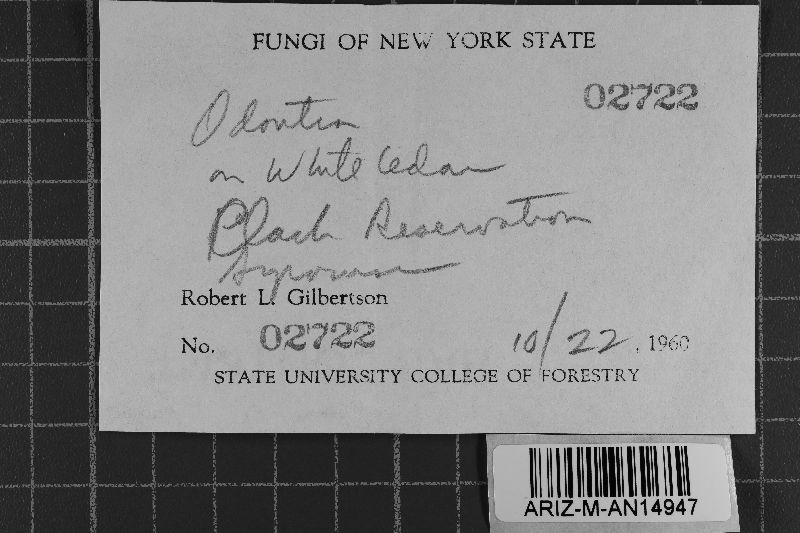 FUNGI OF NEW YORK STATE
02722
Odontia
on White Cedar
Clark Reservation
Syracuse
Robert L. Gilbertson
No. 02722 10/22, 1960
STATE UNIVERSITY COLLEGE OF FORESTRY
ARIZ-M-AN14947